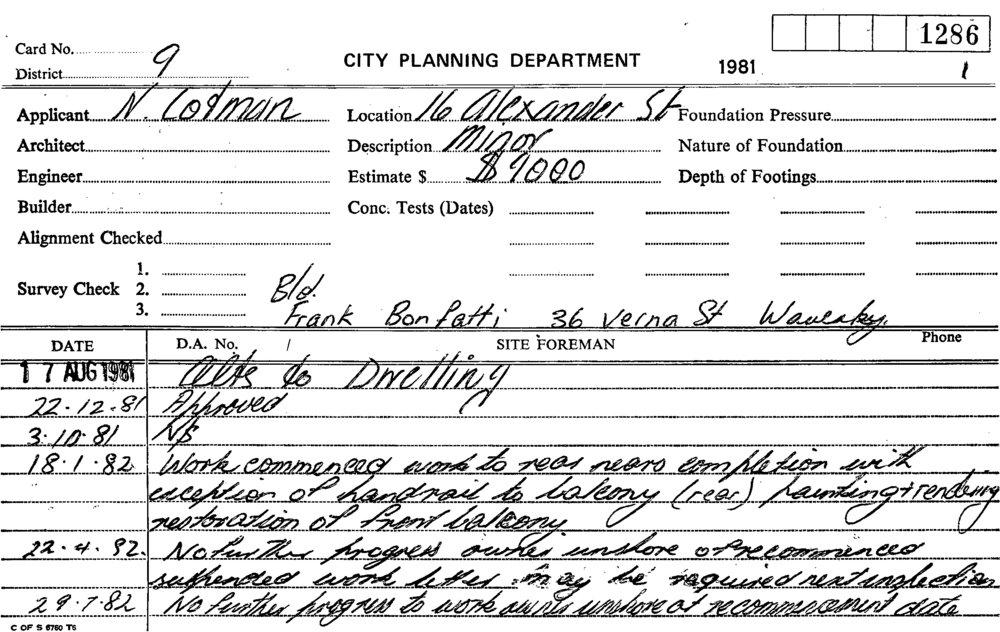 1286
Card No.
9
CITY PLANNING DEPARTMENT
1981
1
District
Applicant N. Cotman
Location 16 Alexander St
Foundation Pressure
Architect
Description Minor
Nature of Foundation
Engineer
Estimate $ $9000
Depth of Footings
Builder
Conc. Tests (Dates)
Alignment Checked
Survey Check
1.
2.
3.
Bld.
Frank Bonfatti 36 Verna St
DATE D.A. No. / SITE FOREMAN Phone
17 AUG 1981 Alts to Dwelling
22.12.81 Approved
3.10.81 N/S
18.1.82 Work commenced work to rear nears completion with
exception of handrail to balcony (rear) painting + rendering
restoration of front balcony
22.4.82. No further progress owner unshore of recommenced
suspended work letter may be required next inspection
29.7.82 No further progress to work owner unshore of recommencment date
C OF S 6760 T6